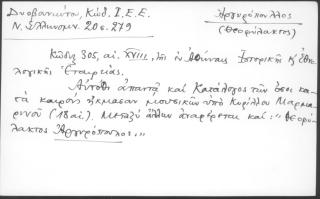 Δυοβουνιώτου, Κώδ. Ι.Ε.Ε.
Ν. Ἑλληνομν. 20 σ. 279
Ἀργυρόπουλλος
(Θεοφύλακτος)
Κῶδιξ 305, αἰ. XVIII, τῆς ἐν Ἀθήναις Ἱστορικῆς κ' Ἐθνο
λογικῆς Ἑταιρείας.
Αὐτόθι ἅπαντα καὶ Κατάλογος τῶν ὅσοι κα
τὰ καιροὺς ἤκμασαν μουσικῶν ὑπὸ Κυρίλλου Μαρμα
ρηνοῦ (18 αἰ.). Μεταξὺ ἄλλων ἀναφέρεται καὶ: "Θεοφύ
λακτος Ἀργυρόπουλος".